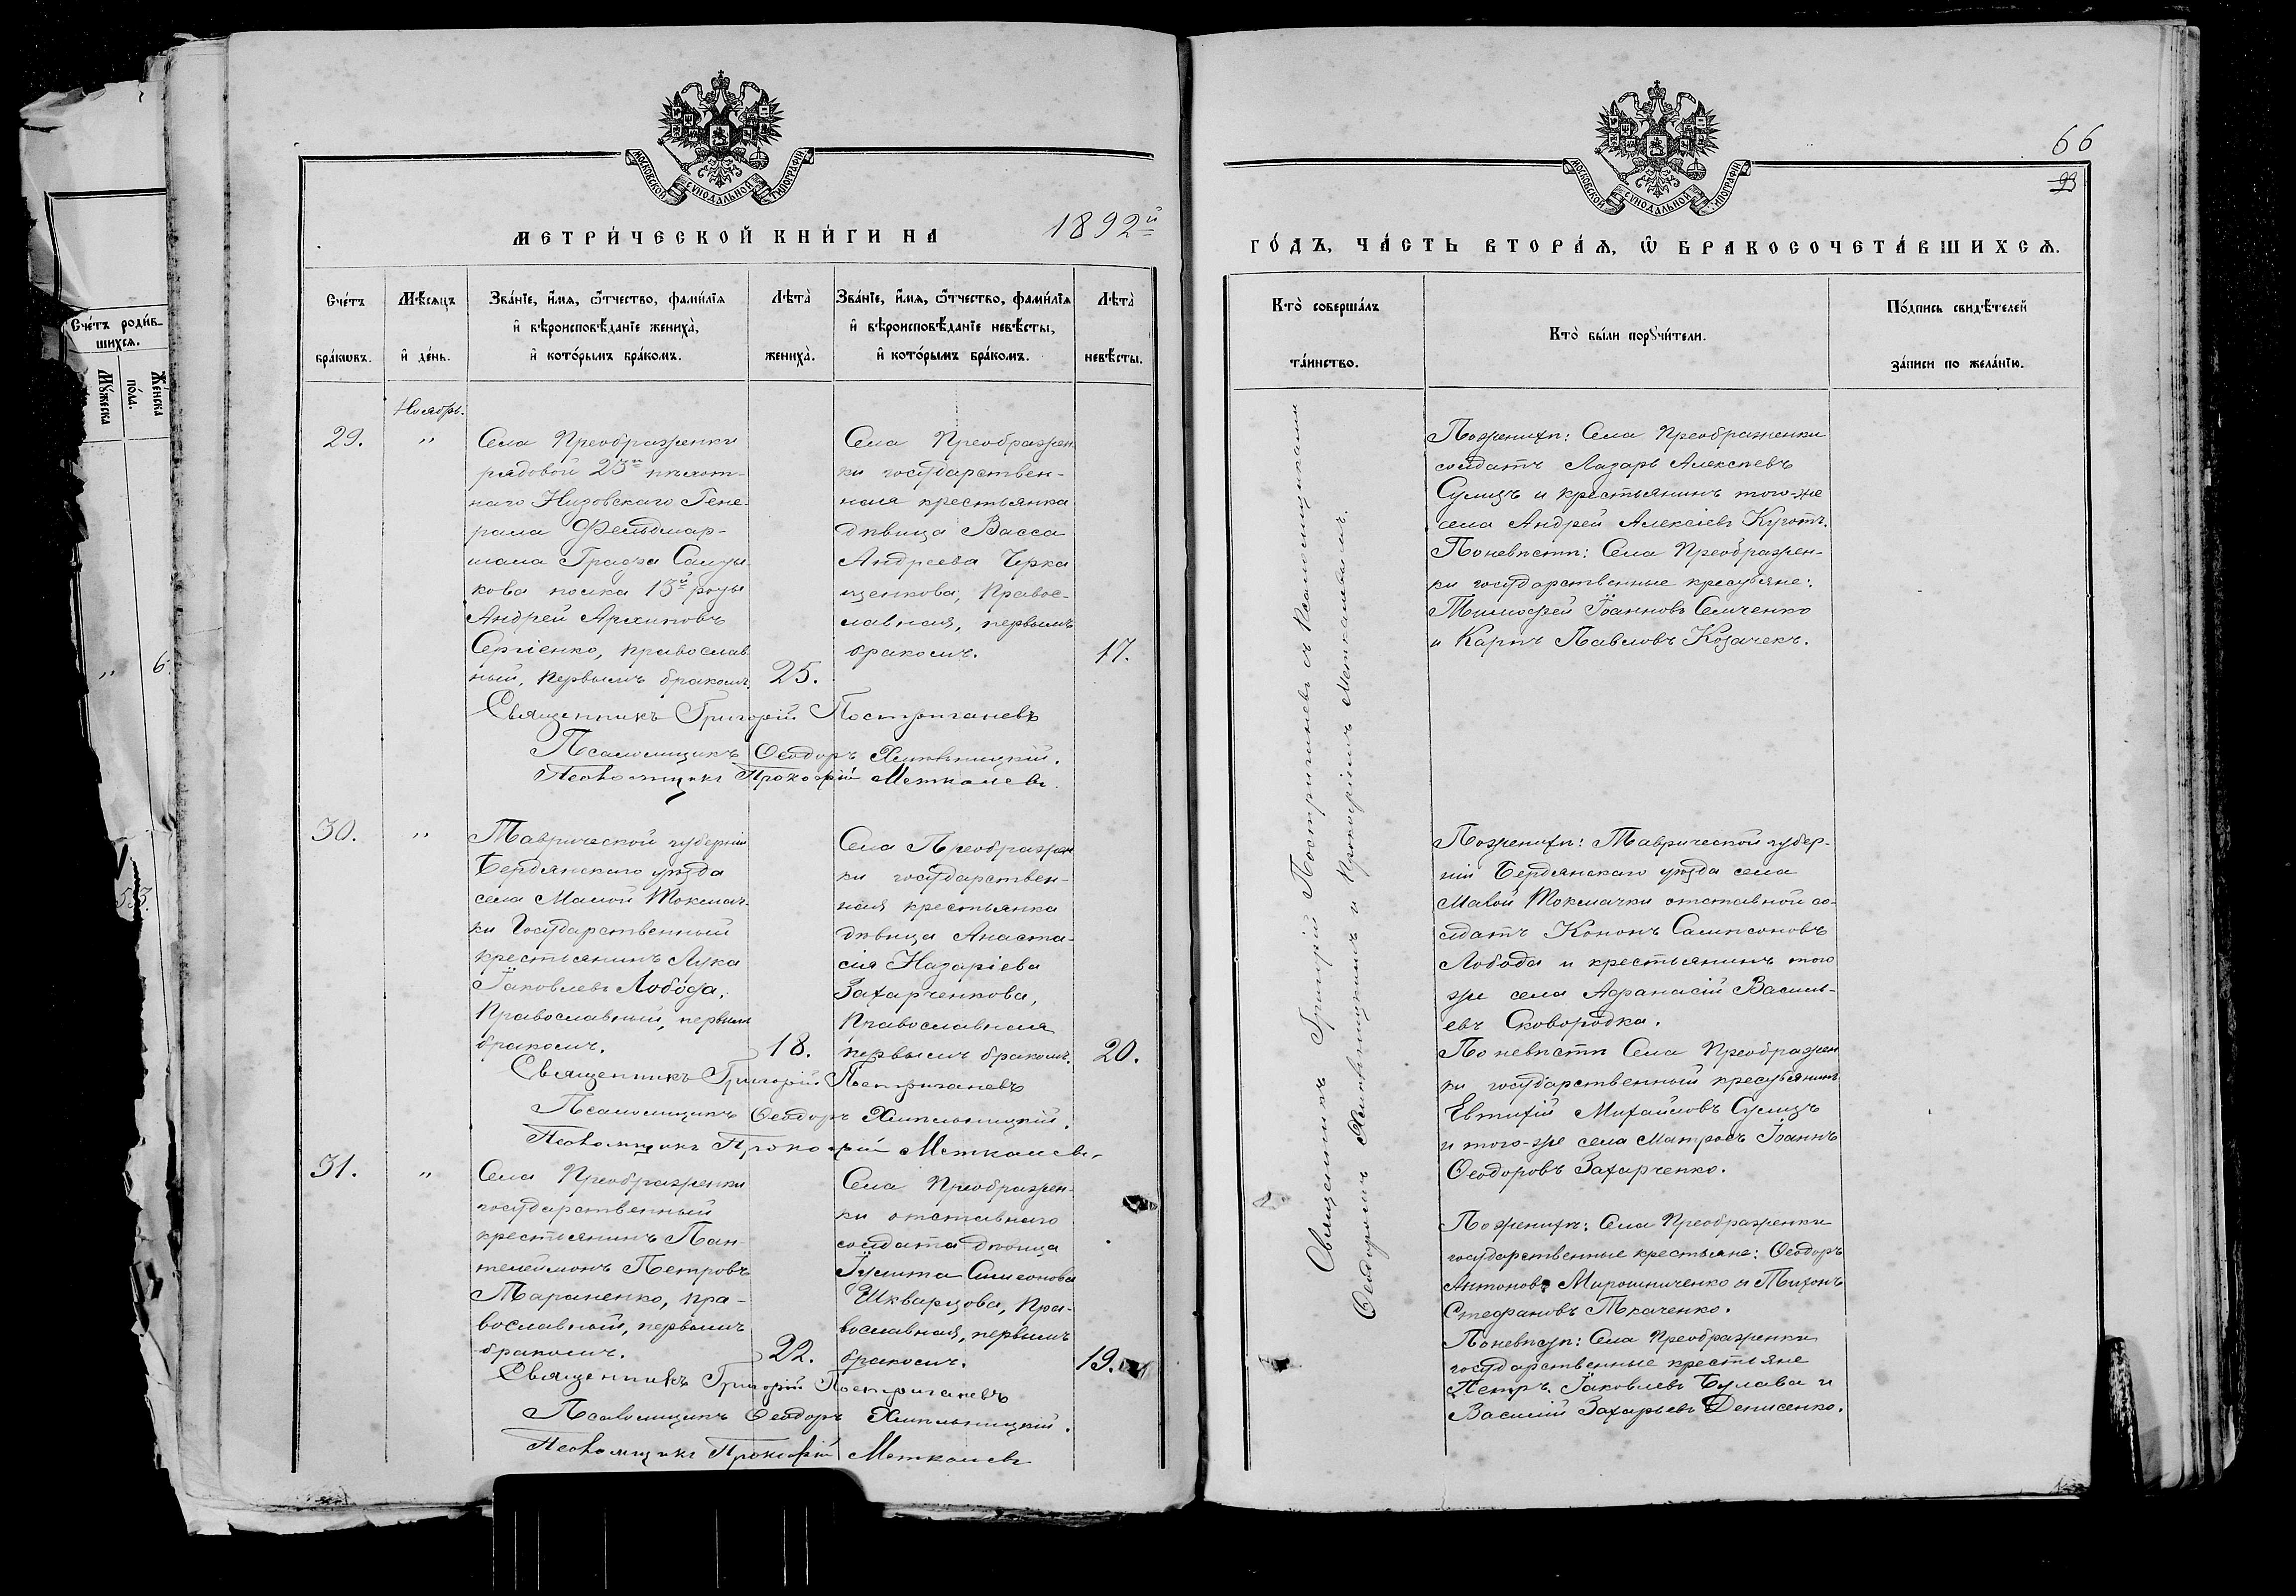 МОСКОВСКОЙ СѴНОДАЛЬНОЙ ТИПОГРАФІИ
МЕТРИ́ЧЕСКОЙ КНИ́ГИ НА 1892й
Сче́тъ бра́кωвъ.
Мѣ́сяцъ и҆ де́нь.
Зва́нїе, и҆́мя, ѻ҆́тчество, фами́лїя
и҆ вѣроисповѣ́данїе жениха̀,
и҆ кото́рымъ бра́комъ.
Лѣта̀ жениха̀.
Зва́нїе, и҆́мя, ѻ҆́тчество, фами́лїя
и҆ вѣроисповѣ́данїе невѣ́сты,
и҆ кото́рымъ бра́комъ.
Лѣта̀ невѣ́сты.
Ноябрь.
29.
"
Села Преображенки
рядовой 23й пѣхот-
наго Низовскаго Гене-
рала Фельдмар-
шала Графа Салты
кова полка 13й роты
Андрей Архиповъ
Сергіенко, православ
ный, первымъ бракомъ.
25.
Села Преображен
ки государствен-
ная крестьянка
дѣвица Васса
Андреева Черка
щенкова, Правос-
лавная, первымъ
бракомъ.
17.
Священникъ Григорій Постригачевъ
Псаломщикъ Ѳеодоръ Хмѣльницкій.
Псаломщикъ Прокофій Меткалевъ
30.
"
Таврической губерніи
Бердянскаго уѣзда
села Малой Токмач-
ки Государственный
крестьянинъ Лука
Іаковлевъ Лобода,
Православный, первымъ
бракомъ.
18.
Села Преображен
ки государствен-
ная крестьянка
дѣвица Анаста-
сія Назаріева
Захарченкова,
Православная
первымъ бракомъ.
20.
Священникъ Григорій Постригачевъ
Псаломщикъ Ѳеодоръ Хмѣльницкій.
Псаломщикъ Прокофій Меткалевъ
31.
"
Села Преображенки
государственный
крестьянинъ Пан-
телеймонъ Петровъ
Тараненко, пра-
вославный, первымъ
бракомъ.
22.
Села Преображен-
ки отставнаго
солдата дѣвица
Іулита Симеонова
Шкварцова, Пра-
вославная, первымъ
бракомъ.
19.
Священникъ Григорій Постригачевъ
Псаломщикъ Ѳеодоръ Хмѣльницкій.
Псаломщикъ Прокофій Меткалевъ
Сче́тъ роди́в-
шихся.
Мꙋ́жеска
Же́нска
по́ла.
"
6.
МОСКОВСКОЙ СѴНОДАЛЬНОЙ ТИПОГРАФІИ
66
93
ГО́ДЪ, ЧА́СТЬ ВТОРА́Я, Ѡ҆ БРАКОСОЧЕТА́ВШИХСЯ.
Кто̀ соверша́лъ
та́инство.
Кто̀ бы́ли порꙋчи́тели.
По́дпись свидѣ́телей
за́писи по жела́нїю.
Священникъ Григорій Постригачевъ съ Псаломщиками
Ѳеодоромъ Хмѣльницкимъ и Прокофіемъ Меткалевымъ.
По женихѣ: Села Преображенки
солдатъ Лазарь Алексѣевъ
Сулицъ и крестьянинъ того-же
села Андрей Алексіевъ Куготъ.
По невѣстѣ: Села Преображен-
ки государственные крестьяне:
Тимофей Іоанновъ Семченко
и Карпъ Павловъ Козачекъ.
По женихѣ: Таврической губер-
ніи Бердянскаго уѣзда села
Малой Токмачки отставной со-
лдатъ Кононъ Сампсоновъ
Лобода и крестьянинъ того
же села Афанасій Василь-
евъ Сковородка.
По невѣстѣ Села Преображен
ки государственный крестьянинъ
Евтихій Михайловъ Сулицъ
и того-же села матросъ Іоаннъ
Ѳеодоровъ Захарченко.
По женихѣ: Села Преображенки
государственные крестьяне: Ѳеодоръ
Антоновъ Мирошниченко и Тихонъ
Стефановъ Ткаченко.
По невѣстѣ: Села Преображенки
государственные крестьяне
Петръ Іаковлевъ Булава и
Василій Захарьевъ Денисенко.